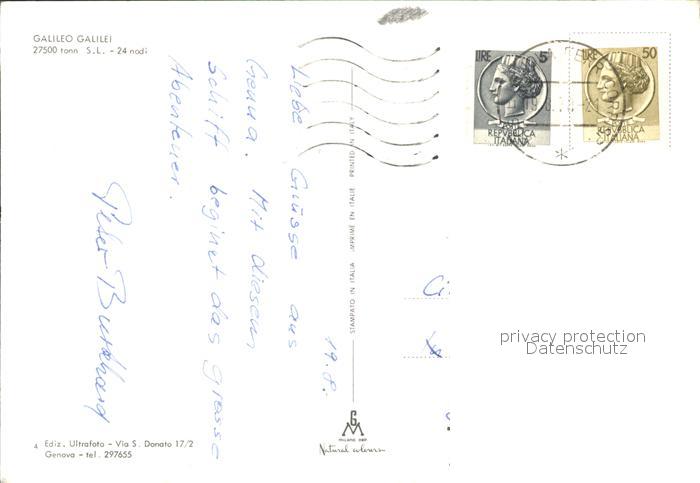 GALILEO GALILEI
27500 tonn S.L. - 24 nodi
19.8.
Liebe Grüsse aus
Genua. Mit diesem
Schiff beginnt das grosse
Abenteuer.
Peter Burkhard
STAMPATO IN ITALIA IMPRIMÉ EN ITALIE PRINTED IN ITALY
LIRE 5
REPVBBLICA
ITALIANA
LIRE 50
REPVBBLICA
ITALIANA
privacy protection
Datenschutz
4 Ediz. Ultrafoto - Via S. Donato 17/2
Genova - tel. 297655
GM
MILANO
Natural colours